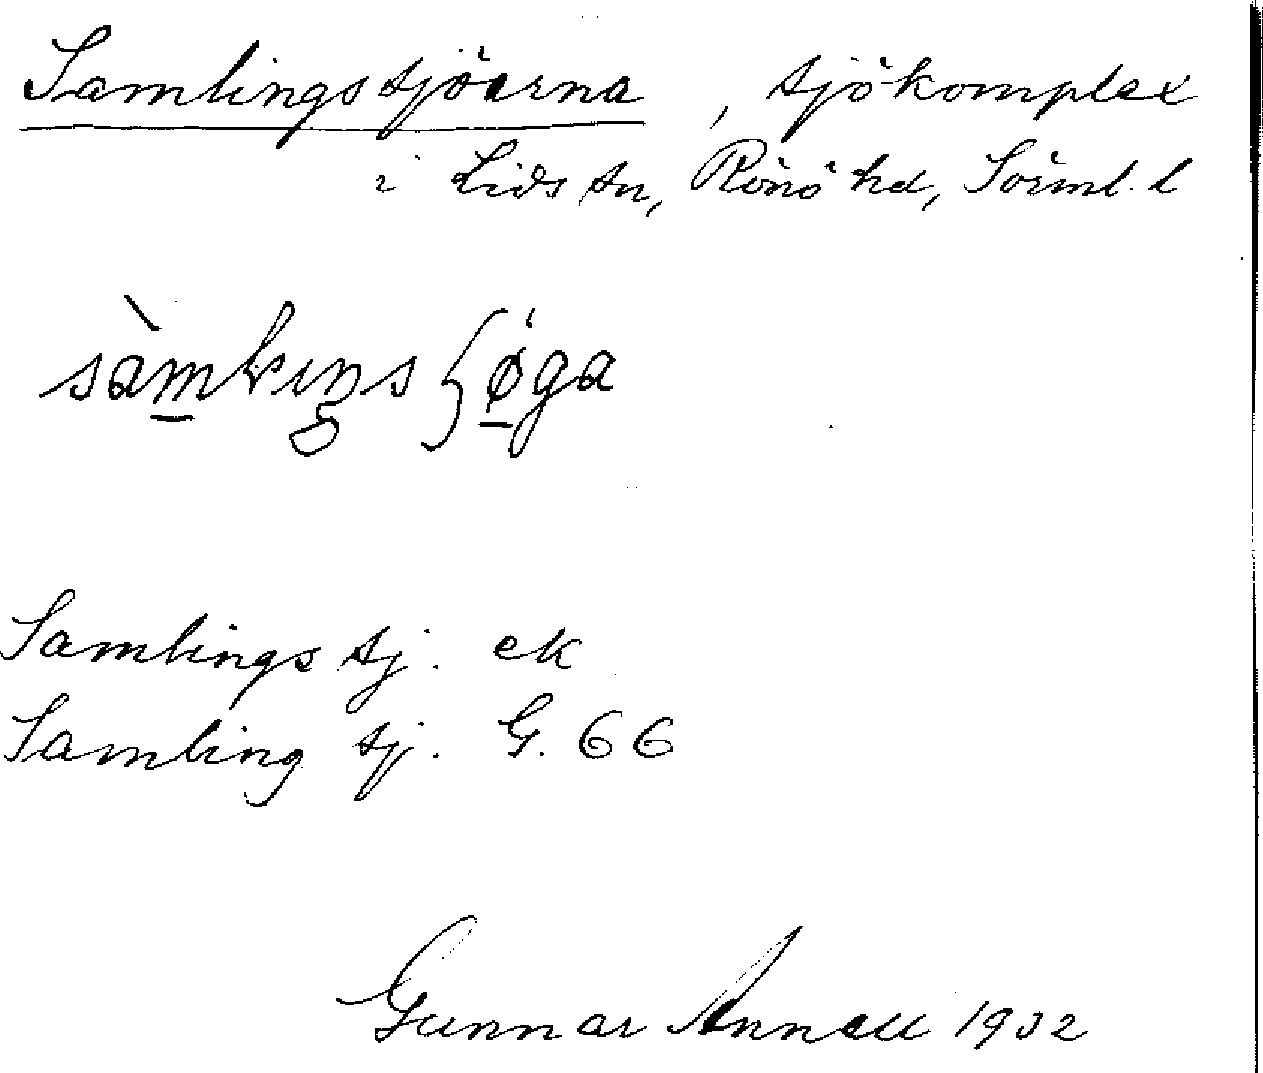 Samlingssjöarna, sjökomplex
i Lids sn, Rönö hd, Sörml. l
Samlings sj. ek
Samling sj. G. 66
Gunnar Annell 1932